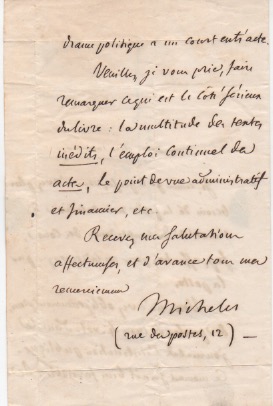 drame politique a un court entr'acte.
Veuillez, je vous prie, faire
remarquer ce qui est le côté sérieux
du livre : la multitude des textes
inédits, l'emploi continuel des
actes, le point de vue administratif
et financier, etc
Recevez mes salutations
affectueuses, et d'avance tous mes
remerciemens
Michelet
(rue des postes, 12) —